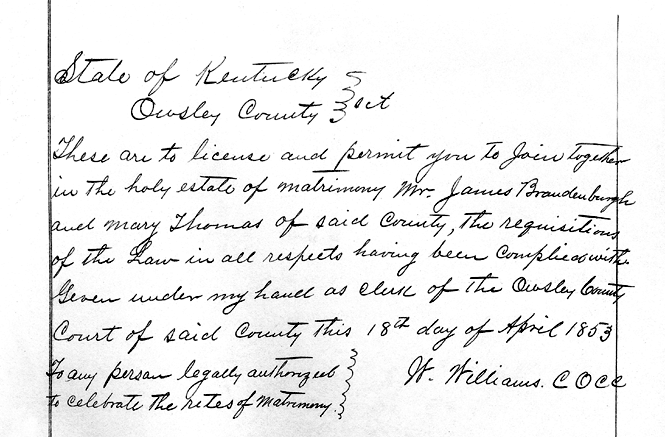 State of Kentucky
Owsley County } Sct
These are to license and permit you to Join together
in the holy estate of matrimony Mr. James Brandenburgh
and Mary Thomas of said County, the requisitions
of the Law in all respects having been Complied with.
Given under my hand as clerk of the Owsley County
Court of said County this 18th day of April 1853
To any person legally authorized
to celebrate the rites of Matrimony.
W. Williams. C O C C